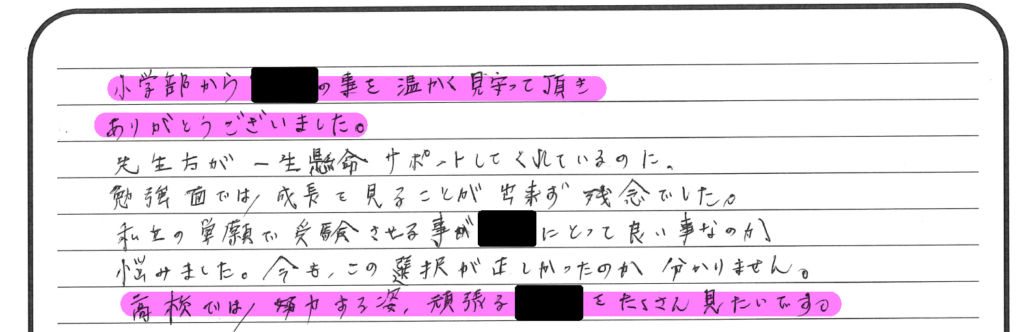 小学部から の事を 温かく見守って頂き
ありがとうございました。
先生方が 一生懸命 サポートしてくれているのに、
勉強面では、成長を見ることが出来ず 残念でした。
私立の単願で受験させる事が にとって良い事なのか、
悩みました。今も、この選択が正しかったのか 分かりません。
高校では、努力する姿、頑張る をたくさん見たいです。